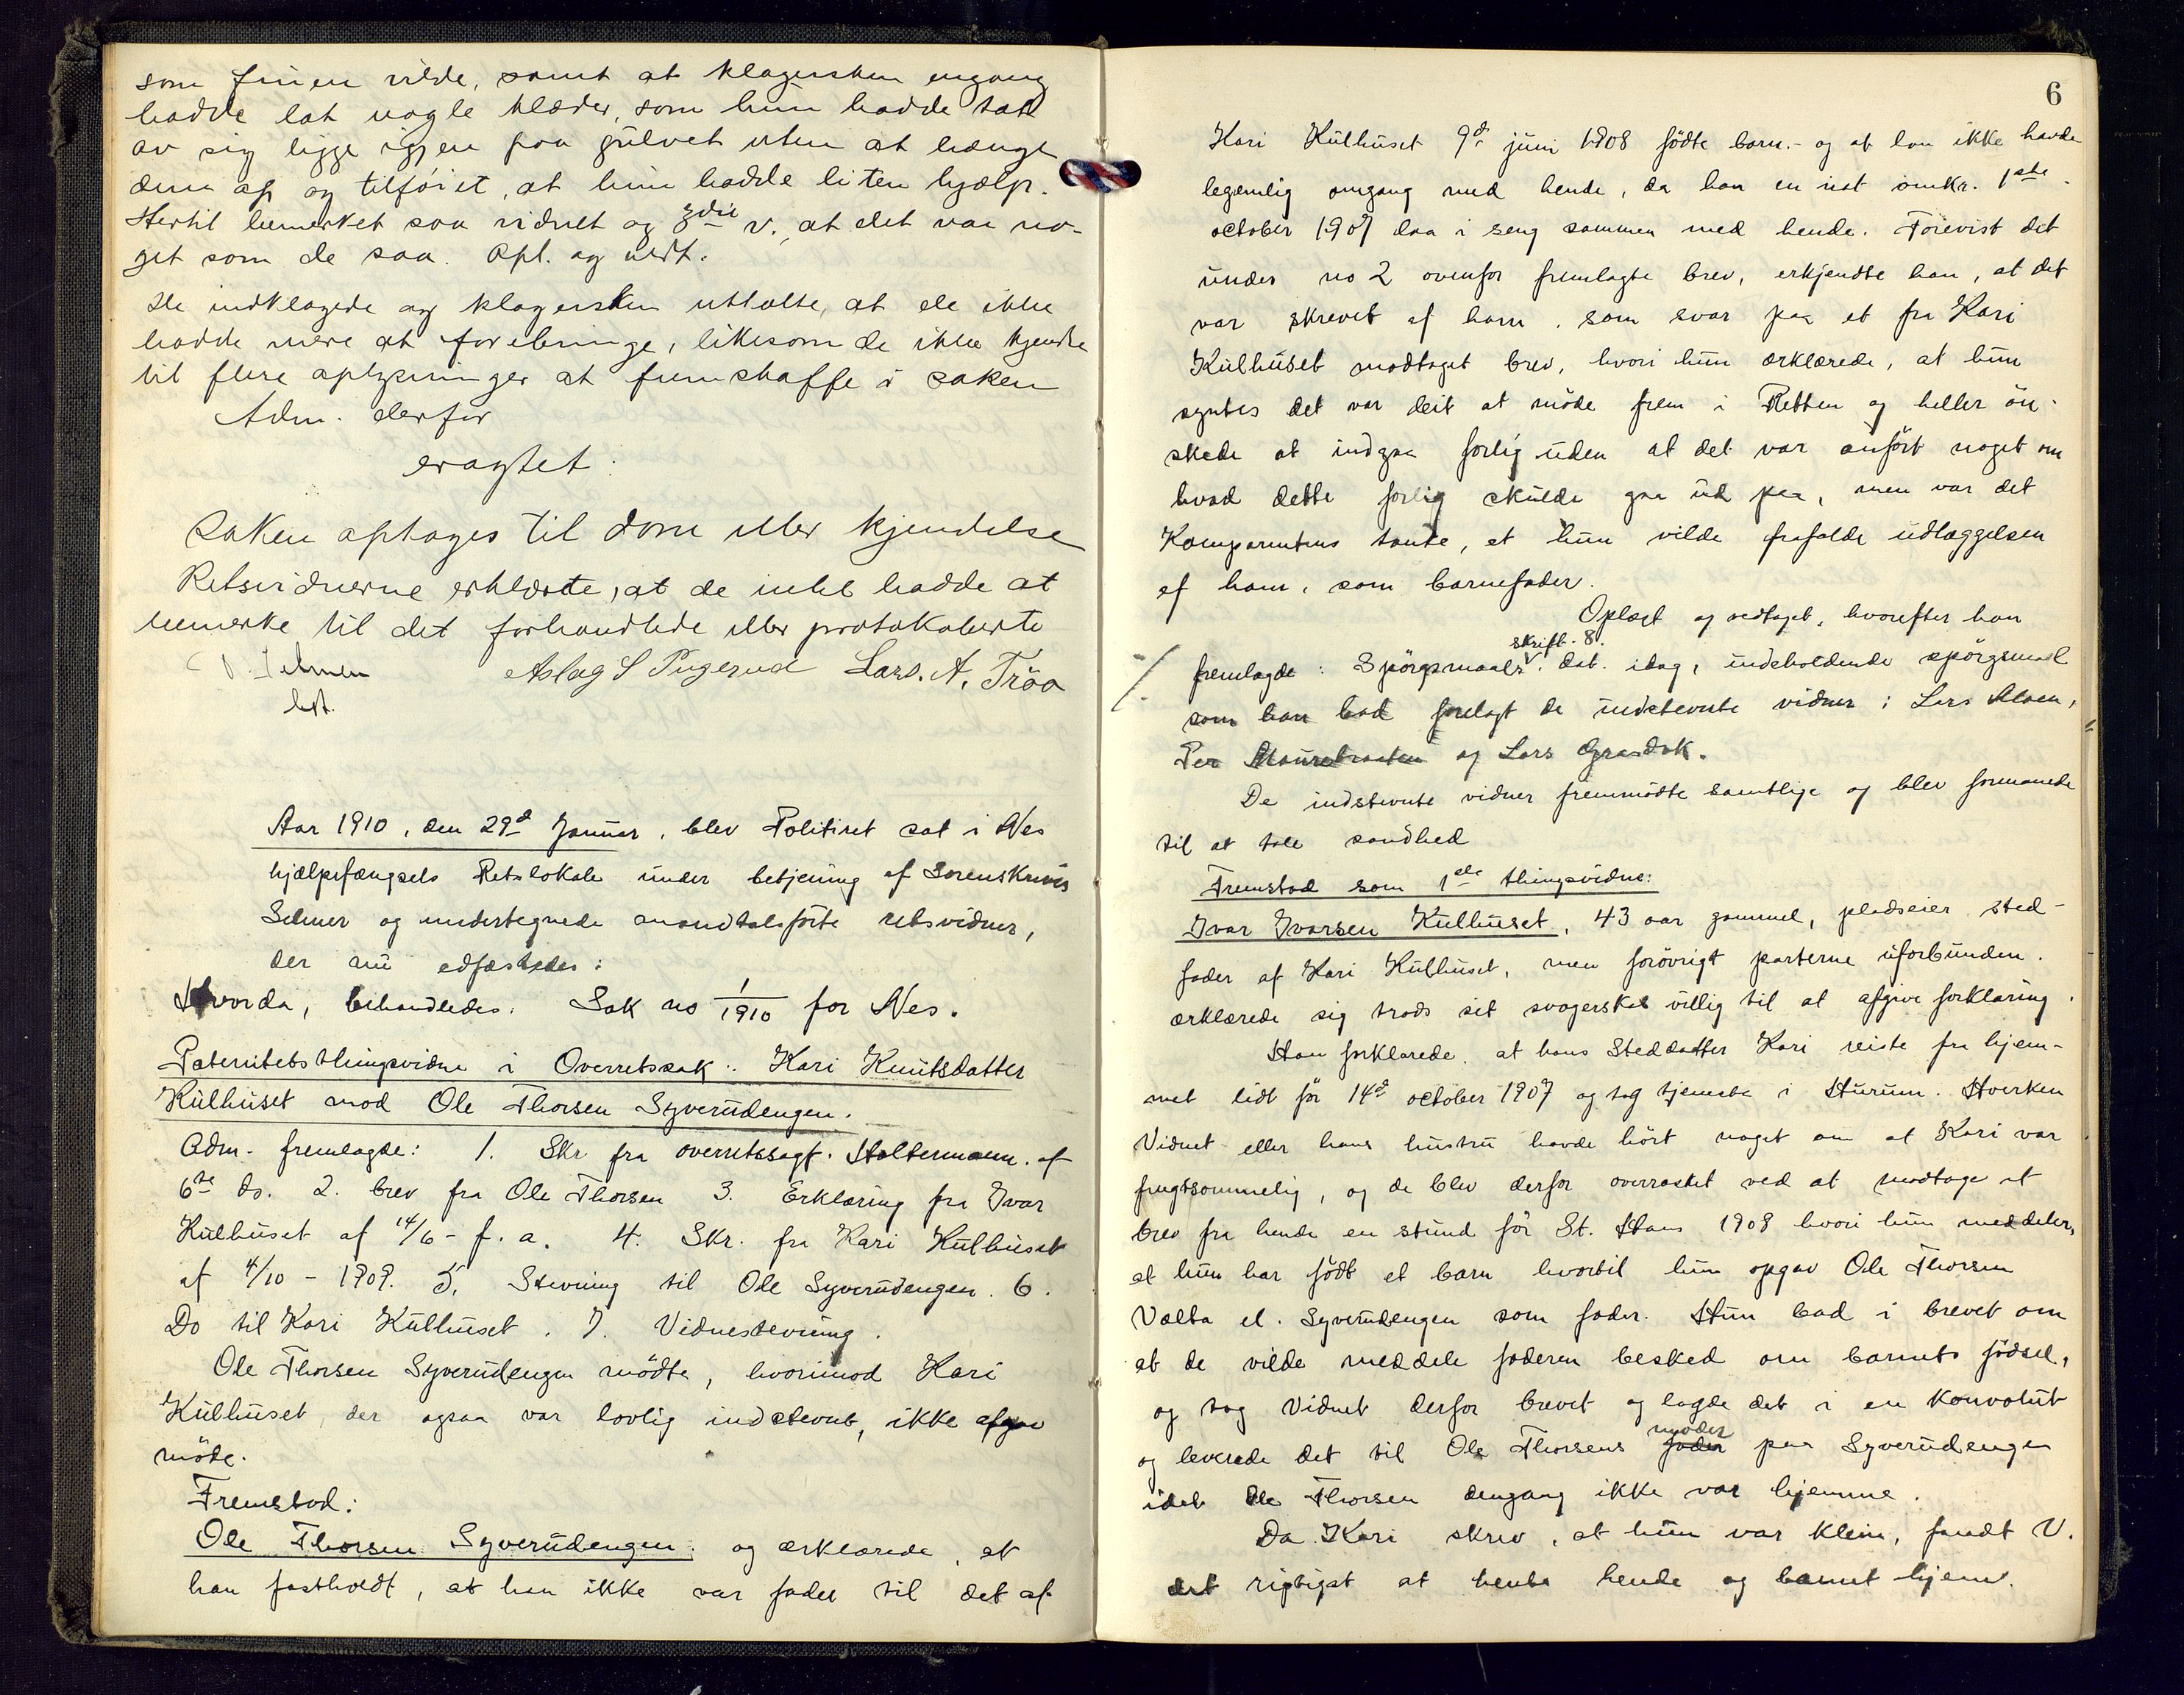 som fruen vilde, samt at klagersken engang
hadde lat nogle klæder, som hun hadde tat
av sig ligge igjen paa gulvet uten at hænge
dem op og tilføiet, at hun hadde liten hjælp.
Hertil bemerket saa vidnet og 3die v., at det var no-
get som de saa. Opl. og vedt.
De indklagede og klagersken uttalte, at de ikke
hadde mere at forebringe, likesom de ikke kjendte
til flere oplysninger at fremskaffe i saken
Adm. derfor
eragtet:
Saken optages til dom eller kjendelse
Retsvidnerne erklærte, at de intet hadde at
bemerke til det forhandlede eller protokolerte
Selmer Aslag S Pugerud Lars. A. Tröa
bst.
Aar 1910, den 29d Januar, blev Politiret sat i Nes
hjælpefængsels Retslokale under betjening af Sorenskriver
Selmer og undertegnede manndtalsförte retsvidner,
der nu edfæstedes:
Hvorda, behandledes: Sak no 1/1910 for Nes.
Paternitets thingsvidne i Overretssak: Kari Knutsdatter
Kulhuset mod Ole Thorsen Syverudengen.
Adm. fremlagde: 1. Skr fra overretssagf. Holtermann. af
6te ds. 2. brev fra Ole Thorsen 3. Erklæring fra Ivar
Kulhuset af 14/6 - f. a. 4. Skr. fra Kari Kulhuset
af 4/10 - 1909. 5. Stevning til Ole Syverudengen. 6.
Do til Kari Kulhuset. 7. Vidnestevning.
Ole Thorsen Syverudengen mödte, hvorimod Kari
Kulhuset, der ogsaa var lovlig indstevnt, ikke afgav
möde.
Fremstod:
Ole Thorsen Syverudengen: og ærklærede, at
han fastholdt, at han ikke var fader til det af
6
Kari Kulhuset 9d juni 1908 födte barn.- og at han ikke havde
legemlig omgang med hende, da han en nat omkr. 1ste
october 1907 laa i seng sammen med hende. Forevist det
under no 2 ovenfor fremlagte brev, erkjendte han, at det
var skrevet af ham, som svar paa et fra Kari
Kulhuset modtaget brev, hvori hun ærklærede, at hun
syntes det var leit at möde frem i Retten og heller ön-
skede at indgaa forlig uden at det var anfört noget om
hvad dette forlig skulde gaa ud paa, men var det
Komparentens tanke, at hun vilde frafalde udlæggelsen
af ham, som barnefader.
Oplæst og vedtaget, hvorefter han
fremlagde: Spörgsmaals skrift. 8. dat. idag, indeholdende spörgsmaal
som han bad forelagt de indstevnte vidner: Lars Moen,
Per og Lars Grasdok.
De indstevnte vidner fremmödte samtlige og blev formanede
til at tale sandhed
Fremstod som 1ste thingsvidne:
Ivar Ivarsen Kulhuset, 43 aar gammel, pladseier sted-
fader af Kari Kulhuset, men forövrigt parterne uforbunden.
ærklærede sig trods sit svogerskab villig til at afgive forklaring.
Han forklarede, at hans Steddatter Kari reiste fra hjem-
met lidt för 14d october 1907 og tog tjeneste i Hurum. Hverken
Vidnet eller hans hustru havde hört noget om at Kari var
frugtsommelig, og de blev derfor overrasket ved at modtage et
brev fra hende en stund för St. Hans 1908 hvori hun meddeler,
at hun har födt et barn hvortil hun opgav Ole Thorsen
Valta el. Syverudengen som fader. Hun bad i brevet om
at de vilde meddele faderen besked om barnets födsel,
og tog Vidnet derfor brevet og lagde det i en Konvolut
og leverede det til Ole Thorsens fader moder paa Syverudengen
idet Ole Thorsen dengang ikke var hjemme.
Da Kari skrev, at hun var klein, fandt V.
det rigtigst at hente hende og barnet hjem.